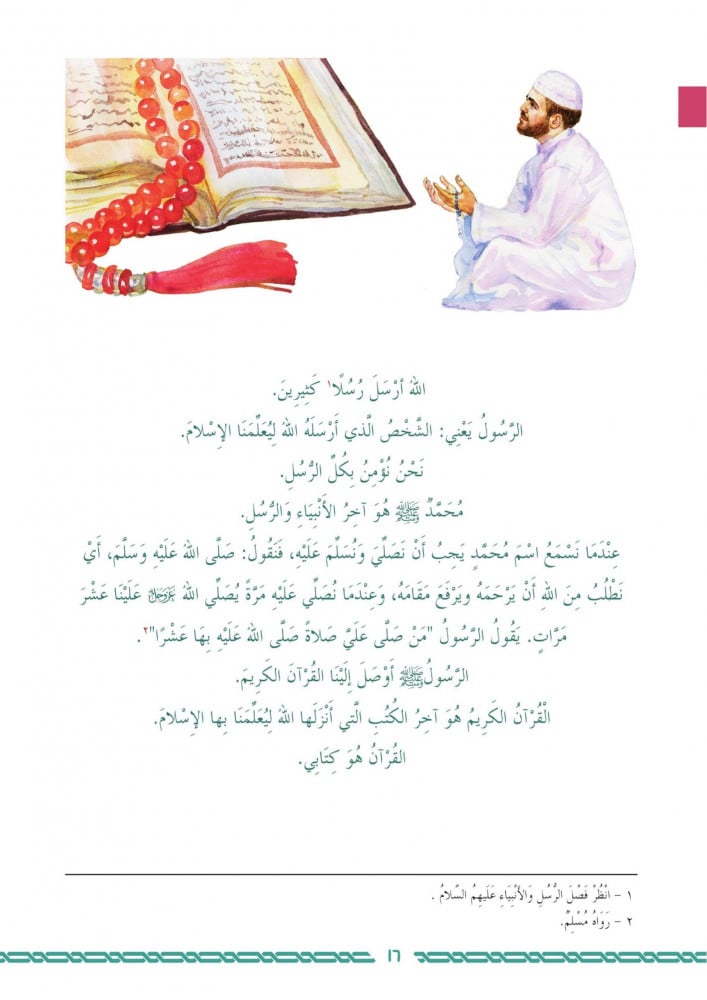 اللهُ أرْسَلَ رُسُلًا١ كَثِيرِينَ.
الرَّسُولُ يَعْنِي: الشَّخْصُ الَّذي أَرْسَلَهُ اللهُ لِيُعَلِّمَنَا الإسْلامَ.
نَحْنُ نُؤْمِنُ بِكُلِّ الرُّسُلِ.
مُحَمَّدٌ ﷺ هُوَ آخِرُ الأَنْبِيَاءِ وَالرُّسُلِ.
عِنْدَمَا نَسْمَعُ اسْمَ مُحَمَّدٍ يَجِبُ أَنْ نَصَلِّيَ وَنُسَلِّمَ عَلَيْهِ، فَنَقُولُ: صَلَّى اللهُ عَلَيْهِ وَسَلَّمَ، أَيْ
نَطْلُبُ مِنَ اللهِ أَنْ يَرْحَمَهُ ويَرْفَعَ مَقَامَهُ، وَعِنْدَمَا نُصَلِّي عَلَيْهِ مَرَّةً يُصَلِّي اللهُ عَزَّوَجَلَّ عَلَيْنَا عَشْرَ
مَرَّاتٍ. يَقُولُ الرَّسُولُ "مَنْ صَلَّى عَلَيَّ صَلاةً صَلَّى اللهُ عَلَيْهِ بِهَا عَشْرًا"٢.
الرَّسُولُ ﷺ أَوْصَلَ إِلَيْنَا القُرْآنَ الكَرِيمَ.
الْقُرْآنُ الكَرِيمُ هُوَ آخِرُ الكُتُبِ الَّتي أَنْزَلَها اللهُ لِيُعَلِّمَنَا بِها الإِسْلامَ.
القُرْآنُ هُوَ كِتَابِي.
١ - انْظُرْ فَضْلَ الرُّسُلِ وَالأَنْبِيَاءِ عَلَيهِمُ السَّلامُ .
٢ - رَوَاهُ مُسْلِمٌ.
١٦